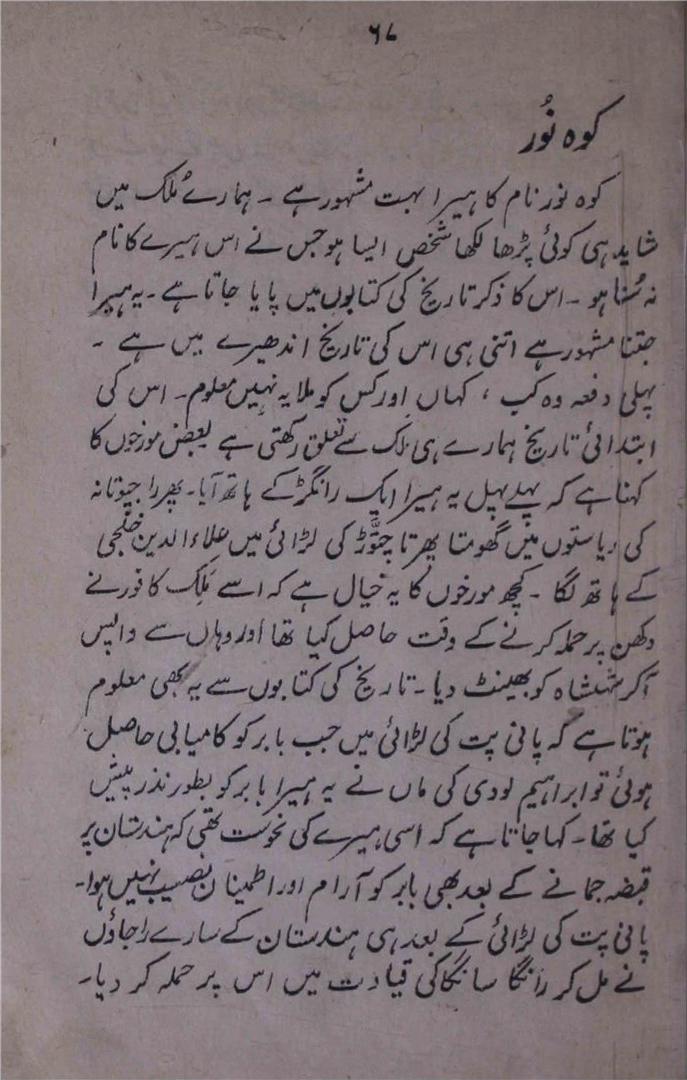 ۶۷
کوہ نُور
کوہ نور نام کا ہیرا بہت مشہور ہے ۔ ہمارے مُلک میں
شاید ہی کوئی پڑھا لکھا شخص ایسا ہو جس نے اس ہیرے کا نام
نہ سُنا ہو ۔ اس کا ذکر تاریخ کی کتابوں میں پایا جاتا ہے ۔ یہ ہیرا
جتنا مشہور ہے اتنی ہی اس کی تاریخ اندھیرے میں ہے ۔
پہلی دفعہ وہ کب ، کہاں اور کس کو ملا یہ نہیں معلوم ۔ اس کی
ابتدائی تاریخ ہمارے ہی ملک سے تعلق رکھتی ہے بعض مورخوں کا
کہنا ہے کہ پہلے پہل یہ ہیرا ایک رانگڑ کے ہاتھ آیا ۔ پھر راجپوتانہ
کی ریاستوں میں گھومتا پھرتا چتّوڑ کی لڑائی میں علاءالدین خلجی
کے ہاتھ لگا ۔ کچھ مورخوں کا یہ خیال ہے کہ اسے مَلِک کافور نے
دکھن پر حملہ کرنے کے وقت حاصل کیا تھا اور وہاں سے واپس
آکر شہنشاہ کو بھینٹ دیا ۔ تاریخ کی کتابوں سے یہ بھی معلوم
ہوتا ہے کہ پانی پت کی لڑائی میں جب بابر کو کامیابی حاصل
ہوئی تو ابراہیم لودی کی ماں نے یہ ہیرا بابر کو بطور نذر پیش
کیا تھا ۔ کہا جاتا ہے کہ اسی ہیرے کی نحوست تھی کہ ہندستان پر
قبضہ جمانے کے بعد بھی بابر کو آرام اور اطمینان نصیب نہیں ہوا ۔
پانی پت کی لڑائی کے بعد ہی ہندستان کے سارے راجاؤں
نے مل کر رانگا سانگا کی قیادت میں اس پر حملہ کر دیا ۔